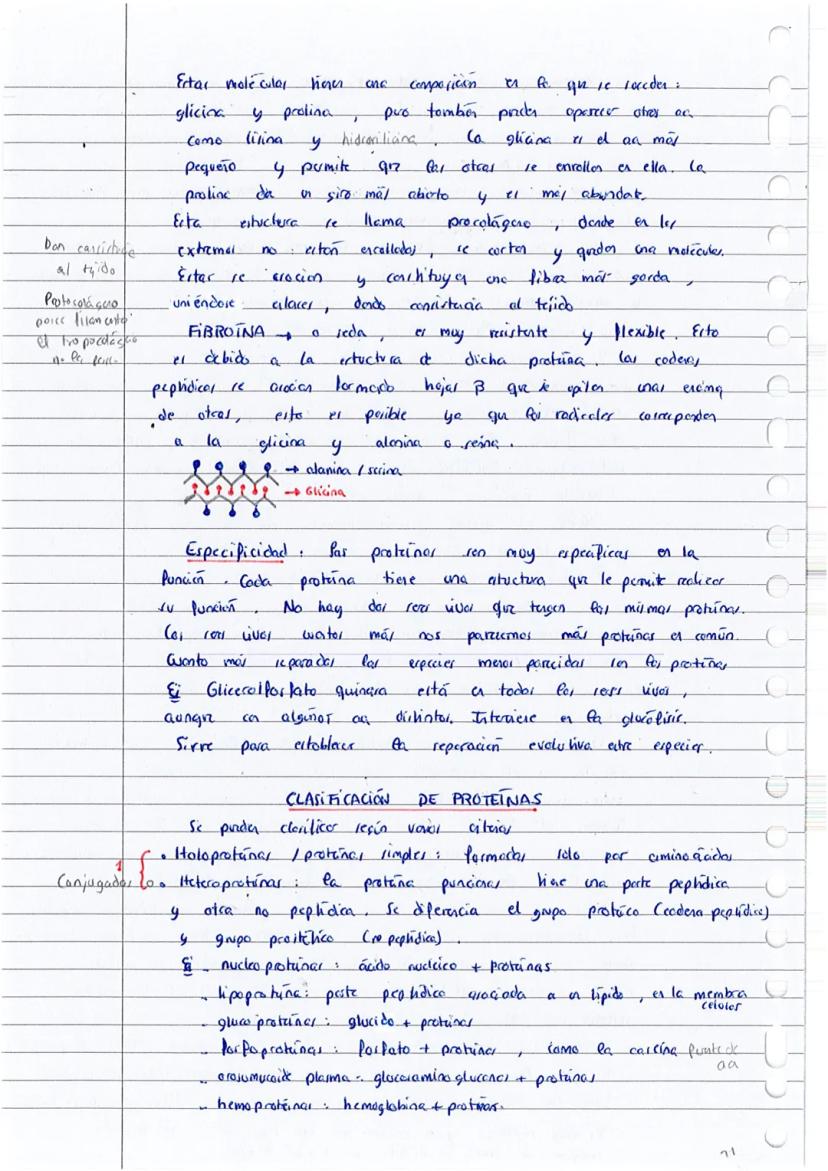 Estas moléculas tienen una composición en la que se suceden:
glicina y prolina, pero también pueden aparecer otros aa
como lisina y hidroxilisina. La glicina es el aa más
pequeño y permite que las otras se enrollen en ella. La
prolina da un giro más abierto y es más abundat.
Esta estructura se llama procolágeno, donde en los
extremos no están enrollados, se cortan y quedan una molécula.
Dan consistencia
al tejido
Estas se asocian y constituyen una fibra más gorda,
Protocolágeno
posee filamento
el tropocolágeno
no los posee
uniéndose enlaces, dando consistencia al tejido
FIBROÍNA → o seda, es muy resistente y flexible. Esto
es debido a la estructura de dicha proteína. Las cadenas
peptídicas se asocian formando hojas β que se apilan unas encima
de otras, esto es posible ya que los radicales corresponden
a la glicina y alanina o serina.
→ alanina / serina
→ Glicina
Especificidad. Las proteínas son muy específicas en la
función. Cada proteína tiene una estructura que le permite realizar
su función. No hay dos seres vivos que tengan las mismas proteínas.
Los seres vivos cuantos más nos parecemos más proteínas en común.
Cuanto más separadas las especies menos parecidas son las proteínas
Ej Glicerolfosfato quinasa está en todos los seres vivos,
aunque con algunos aa distintos. Interviene en la glucólisis.
Sirve para establecer la separación evolutiva entre especies.
CLASIFICACIÓN DE PROTEÍNAS
Se pueden clasificar según varios criterios
• Holoproteínas / proteínas simples: formadas solo por aminoácidos
1
Conjugadas
• Heteroproteínas: la proteína funcional tiene una parte peptídica
y otra no peptídica. Se diferencia el grupo proteico (cadena peptídica)
y grupo prostético (no peptídica).
Ej - nucleoproteínas: ácido nucleico + proteínas
- lipoproteína: parte peptídica asociada a un lípido, en la membrana
celular
- glucoproteínas: glucido + proteínas
- fosfoproteínas: fosfato + proteínas, como la caseína fuente de
aa
- orosomucoide plasma - glucosaminoglucanos + proteínas
- hemoproteínas: hemoglobina + proteínas.
21